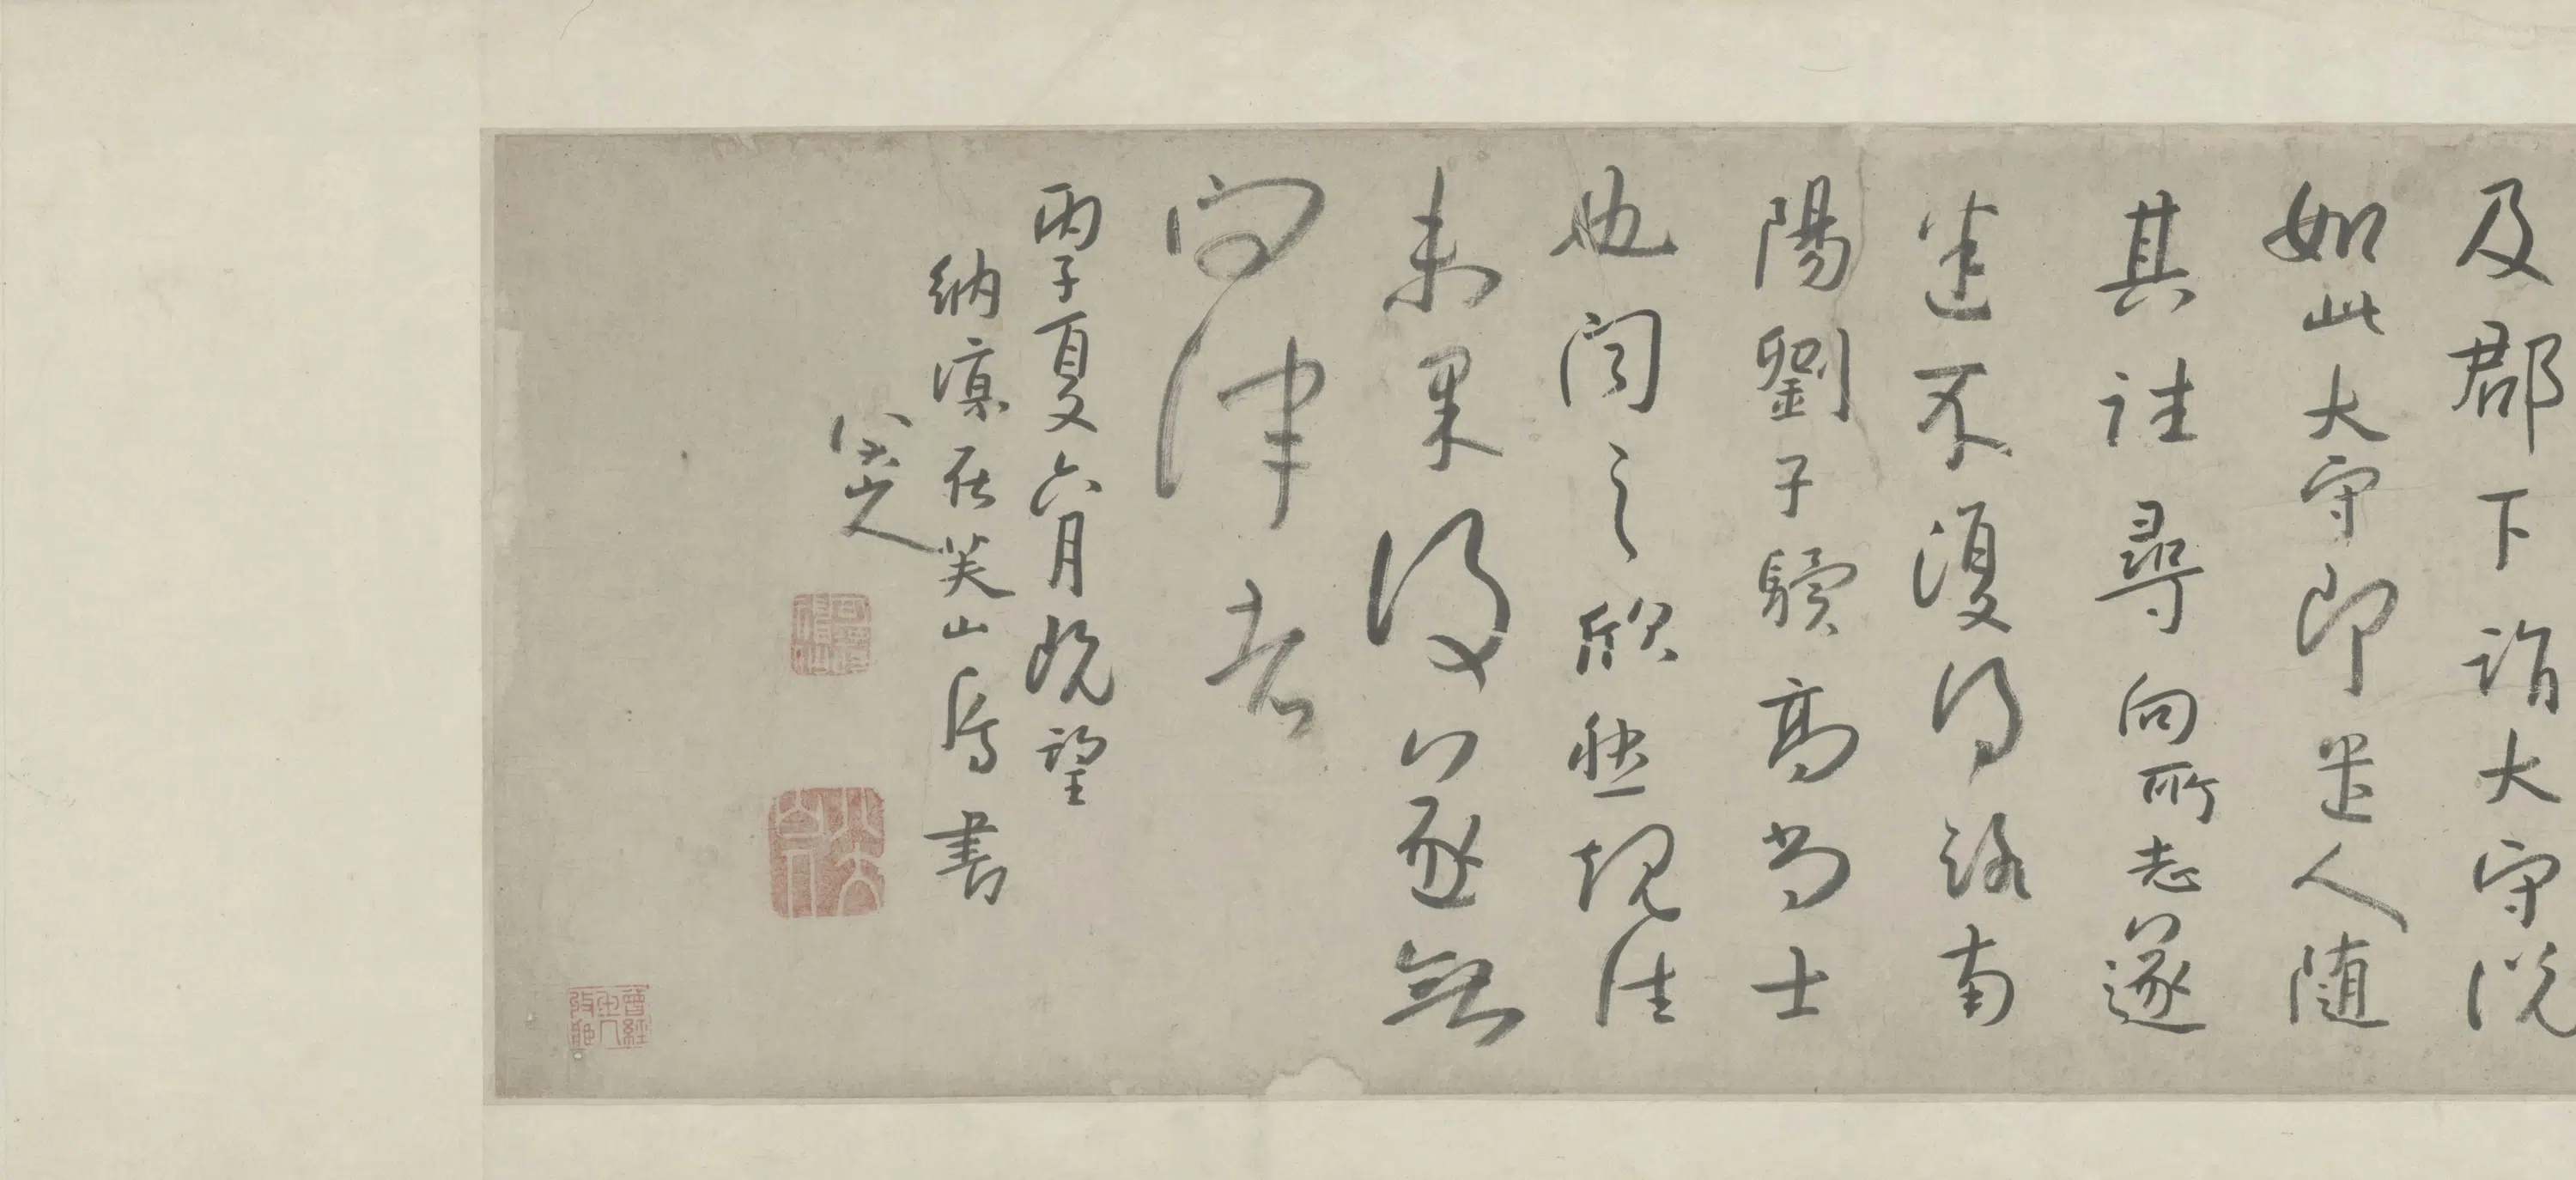 及郡下詣大守說
如此大守即遣人随
其往尋向所志遂
迷不復得路南
陽劉子驥高尚士
也聞之欣然規往
未果後遂無
問津者
丙子夏六月既望
納涼在芙山房書
八大山人
可得神仙
八大山人